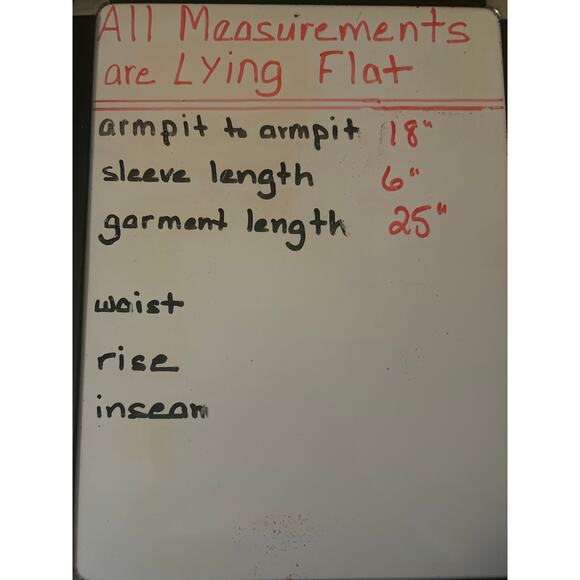 All Measurements
are Lying Flat
armpit to armpit 18"
sleeve length 6"
garment length 25"
waist
rise
inseam